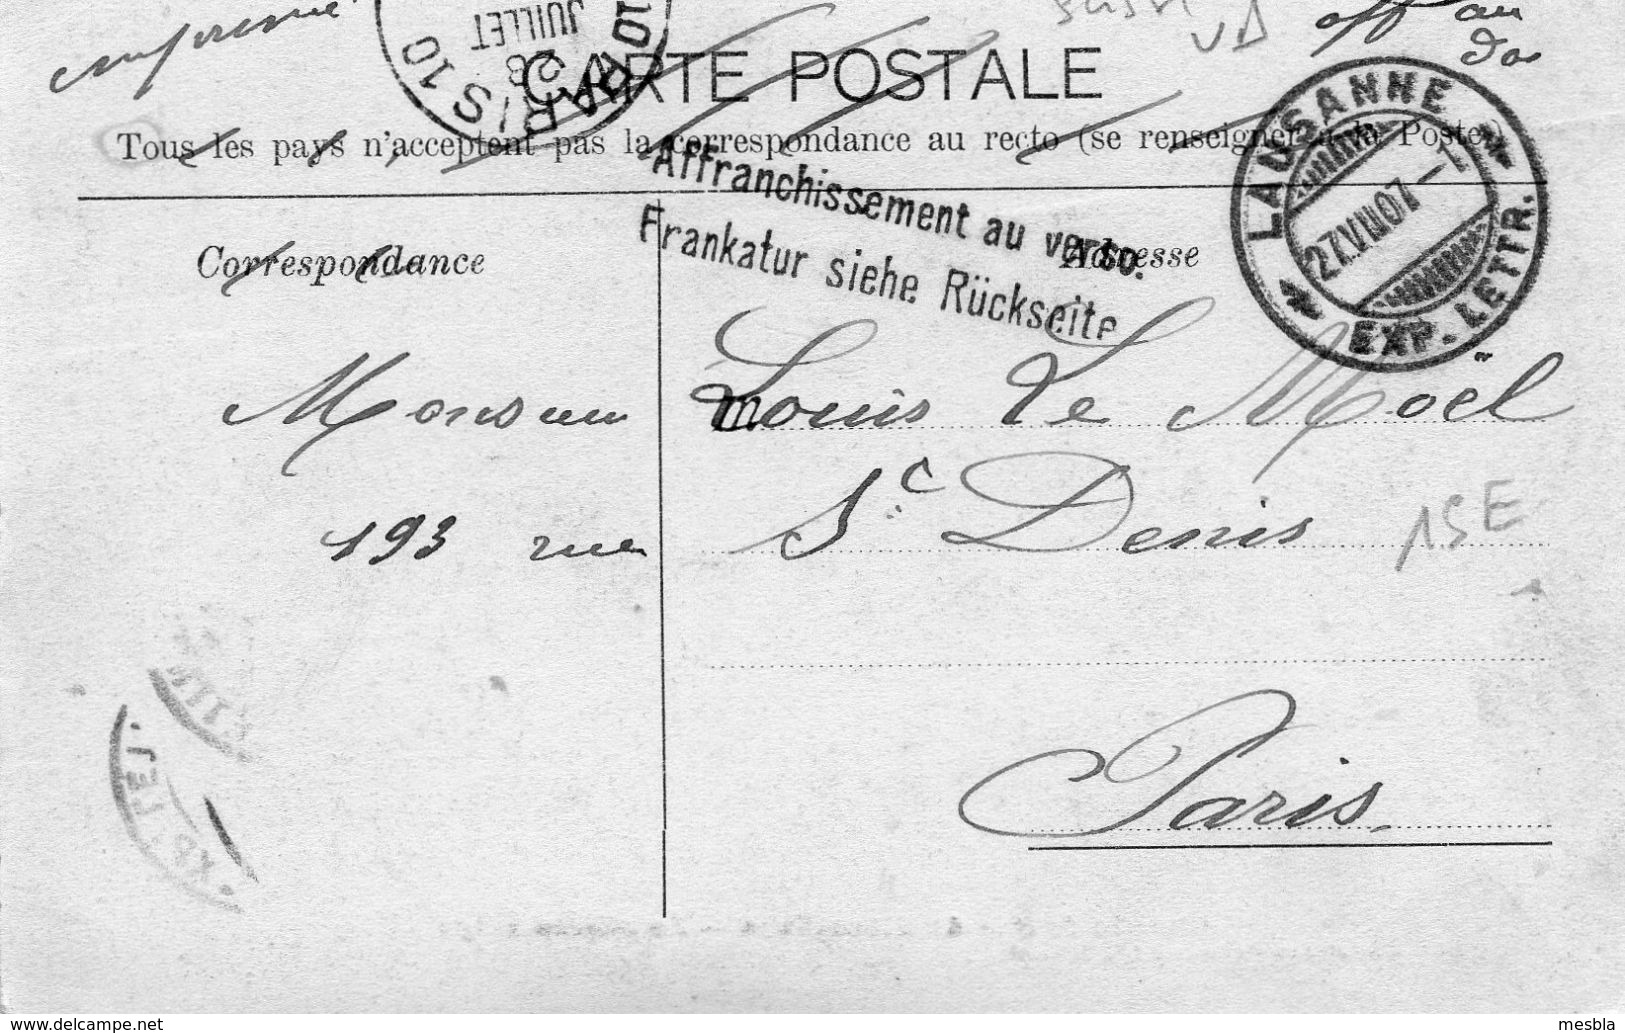 imprimé
aff au
dos
CARTE POSTALE
PARIS 10
26
JUILLET
10
Tous les pays n'acceptent pas la correspondance au recto (se renseigner à la Poste)
Affranchissement au verso.
Frankatur siehe Rückseite
LAUSANNE
27.VII.07-1
EXP. LETTR.
Correspondance
Adresse
Monsieur Louis Le Moël
193 rue St Denis
15E
Paris.
delcampe.net
mesbla